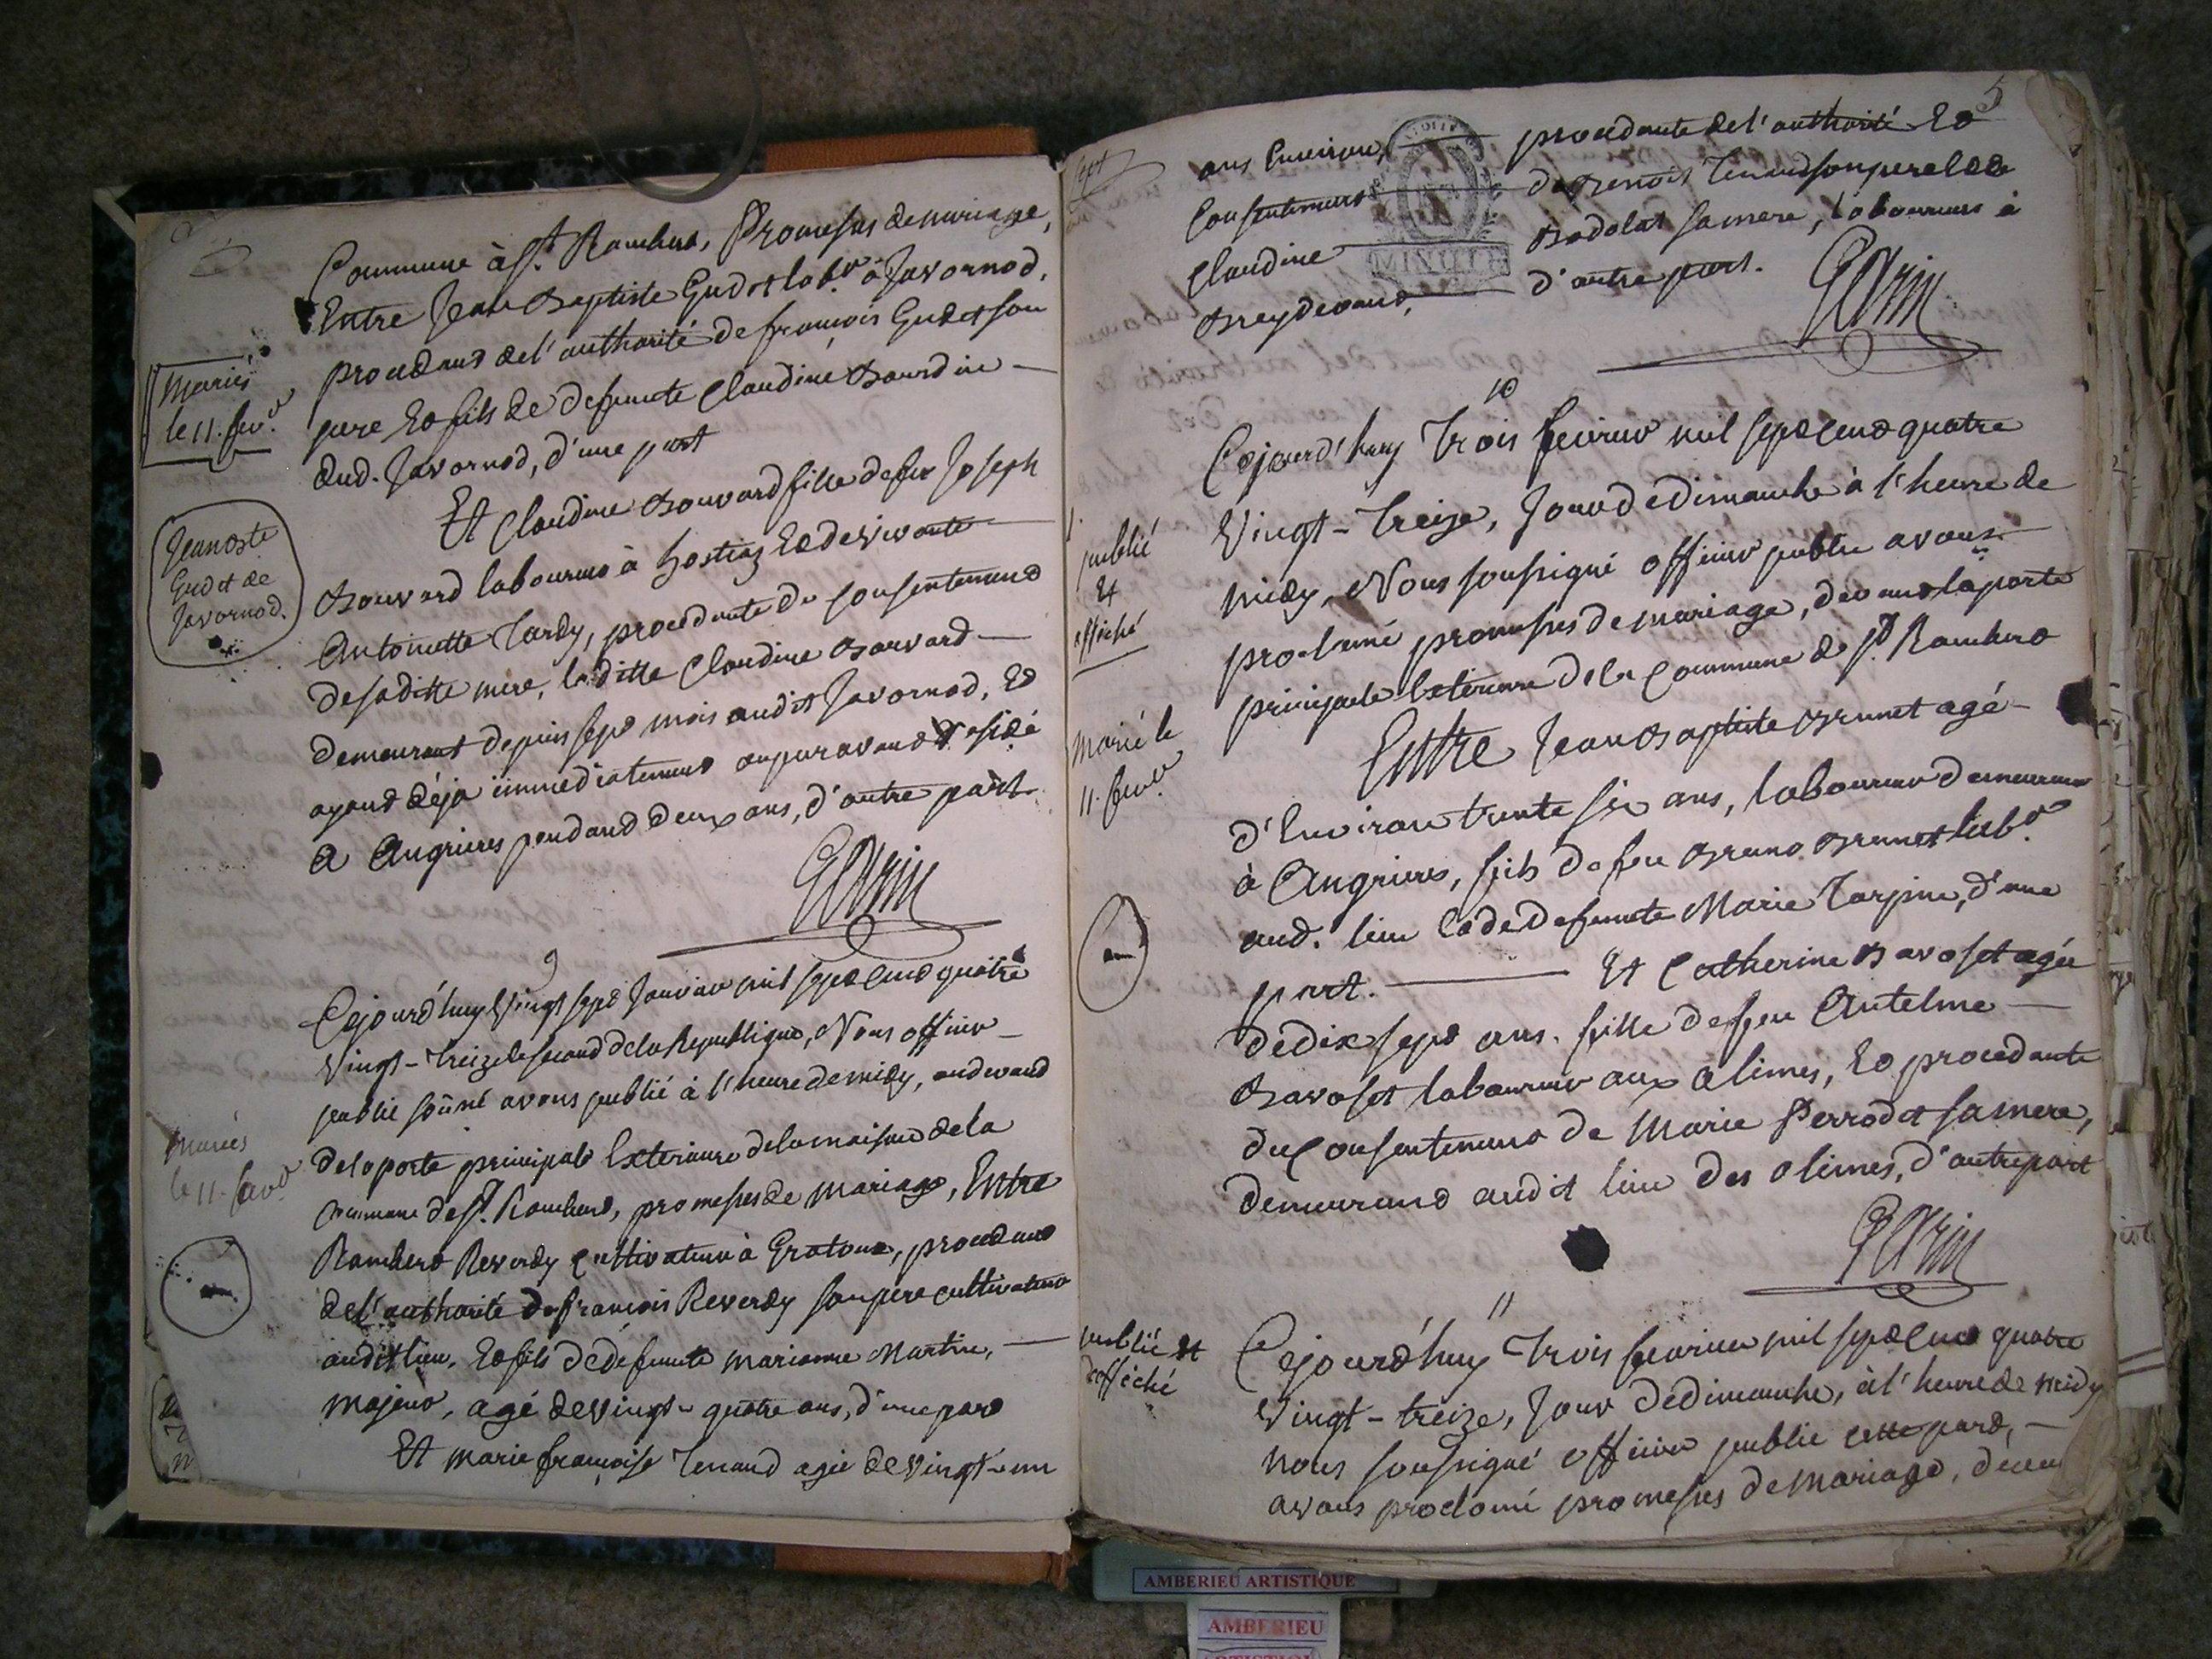 Commune à St. Rambert, Promesses de mariage,
Entre Jean Baptiste Gudet lab.r à Javornod,
procedant de l'authorité de françois Gudet son
pere Et fils de defunte Claudine Bourdin
dud. Javornod, d'une part
Et Claudine Bouvard fille de feu Joseph
Bouvard laboureur à hostiaz Et de vivante
Antoinette Tardy, procedante du consentement
de saditte mere, laditte Claudine Bouvard
demeurant depuis sept mois audit Javornod, Et
ayant déja immediatement auparavant residé
a Angrieres pendant deux ans, d'autre part
mariés
le 11. fevr.
Jean Bte
Gudet de
Javornod.
9
Cejourd'huy vingt sept Janvier mil sept cent quatre
vingt-treize le second de la Republique, Nous officier
public soûné avons publié à l'heure de midy, audevant
de la porte principale Exterieure de la maison de la
Commune de St. Rambert, promesses de mariage, Entre
Rambert Reverdy cultivateur à Gratoux, procedant
de l'authorité de françois Reverdy son pere cultivateur
audit lieu, Et fils de defunte marianne Martin,
majeur, agé de vingt-quatre ans, d'une part
Et marie françoise Tenand agée de vingt-un
mariés
le 11. fevr.
5
ans Environ, procedante de l'authorité Et
Consentement de Benoit Tenand son pere Et de
Claudine Badolat sa mere, laboureurs à
Breydevant, d'autre part.
MINUTE
10
Cejourd'huy trois fevrier mil sept cent quatre
Vingt-treize, Jour de dimanche à l'heure de
midy, Nous soussigné officier public avons
proclamé promesses de mariage, devant la porte
principale Exterieure de la Commune de St. Rambert
Entre Jean Baptiste Brunet agé
d'Environ trente six ans, laboureur demeurant
à Angrieres, fils de feu Bruno Brunet lab.r
aud. lieu Et de defunte Marie Tarpin, d'une
part. Et Catherine Bavoset agée
de dix sept ans. fille de feu Antelme
Bavoset laboureur aux alimes, Et procedante
du Consentement de Marie Perrodet sa mere,
demeurant audit lieu des olimes, d'autre part
publié
Et
affiché
marié le
11. fevr.
11
Cejourd'huy trois fevrier mil sept cent quatre
vingt-treize, Jour de dimanche, à l'heure de midy
nous soussigné officier public cette part,
avons proclamé promesses de mariage, devan
publié Et
affiché
AMBERIEU ARTISTIQUE
AMBERIEU
ARTISTIQUE